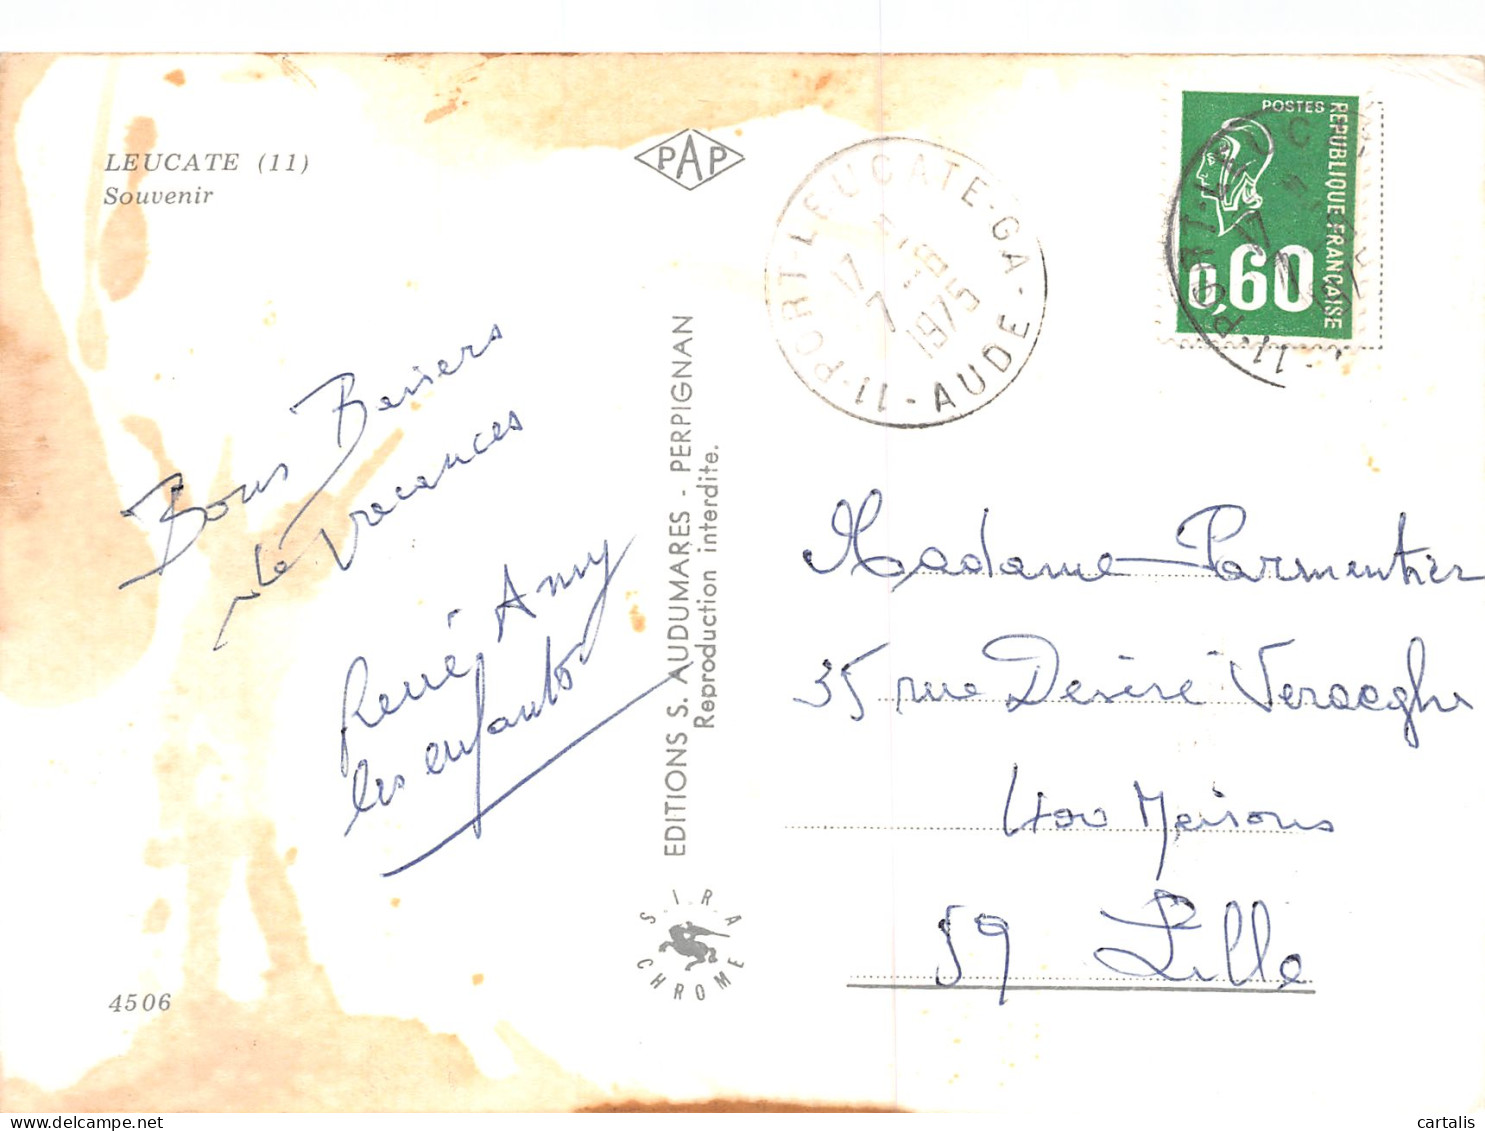 LEUCATE (11)
Souvenir
PAP
11-PORT-LEUCATE-GA-AUDE
18
17
7
1975
POSTES
REPUBLIQUE FRANÇAISE
0,60
Bons Baisers
de vacances
René Anny
les enfants
EDITIONS S. AUDUMARES - PERPIGNAN
Reproduction interdite.
SIRA
CHROME
4506
Madame Parmentier
35 rue Désiré Veraeghe
400 Maisons
59 Lille
cartalis